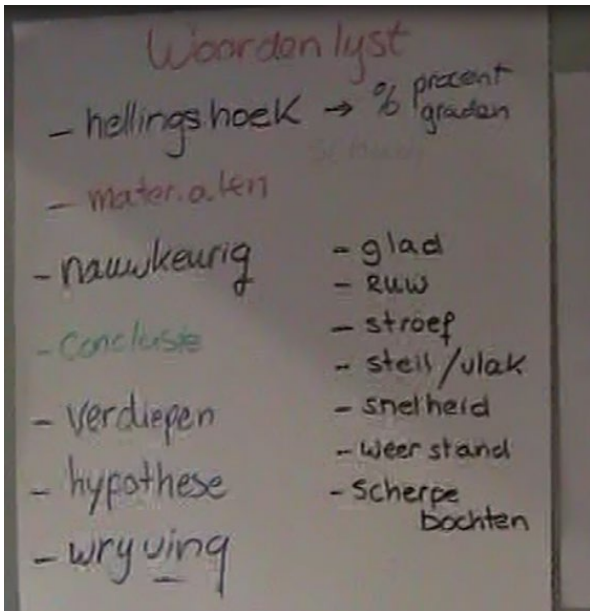 Woordenlyst
- hellingshoek → % procent
graden
- materialen
- nauwkeurig
- conclusie
- verdiepen
- hypothese
- wryving
- glad
- ruw
- stroef
- steil/vlak
- snelheid
- weerstand
- Scherpe
bochten